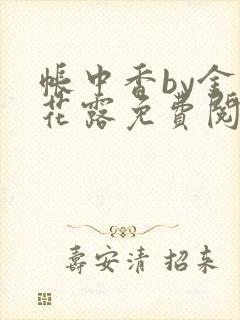 帳中香by金
花露免費閱
壽安清 招来